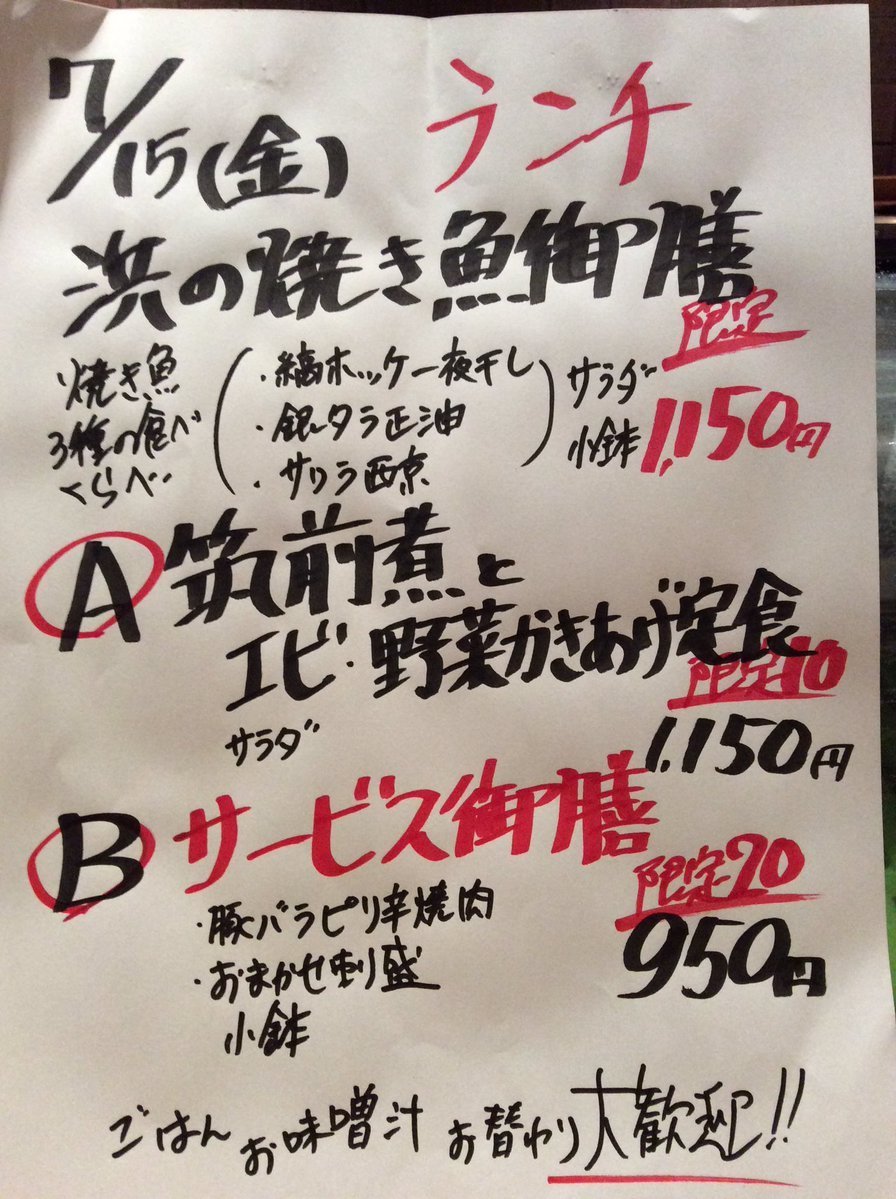 7/15(金) ランチ
浜の焼き魚御膳
限定
焼き魚
3種の食べ
くらべ
・縞ホッケ一夜干し
・銀タラ正油
・サワラ西京
サラダ
小鉢
1,150円
A 筑前煮と
エビ・野菜かきあげ定食
限定10
サラダ
1,150円
B サービス御膳
限定20
・豚バラピリ辛焼肉
950円
・おまかせ刺盛
小鉢
ごはん お味噌汁 お替わり大歓迎!!